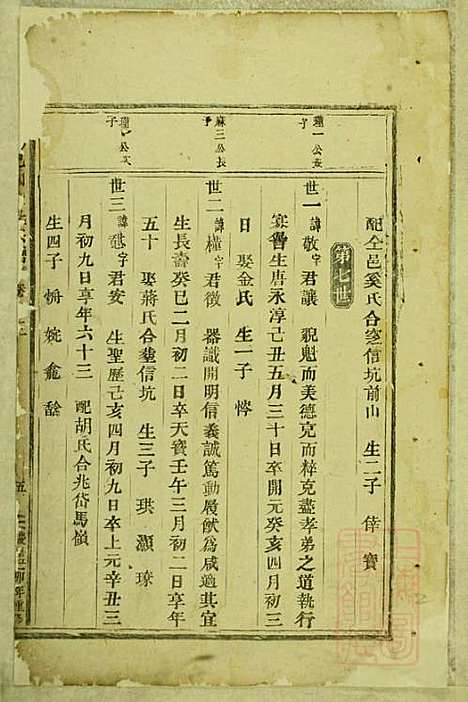 配仝邑奚氏合窆信坑前山　生二子　倖　寶
第七世
種一公長子
世一　諱敬字君讓　貌魁而美德克而粹克盡孝弟之道執行
寡㑹生唐永淳己丑五月三十日卒開元癸亥四月初三
日　娶金氏　生一子　愕
麻三公長子
世二　諱權字君徵　器識開明信義誠篤動履猷為咸適其宜
生長壽癸巳二月初二日卒天寶壬午三月初二日享年
五十　娶蔣氏合塟信坑　生三子　珙　灝　琼
種一公次子
世三　諱　字君安　生聖歷己亥四月初九日卒上元辛丑三
月初九日享年六十三　配胡氏合兆岱馬嶺
生四子
卷
五
卯年重